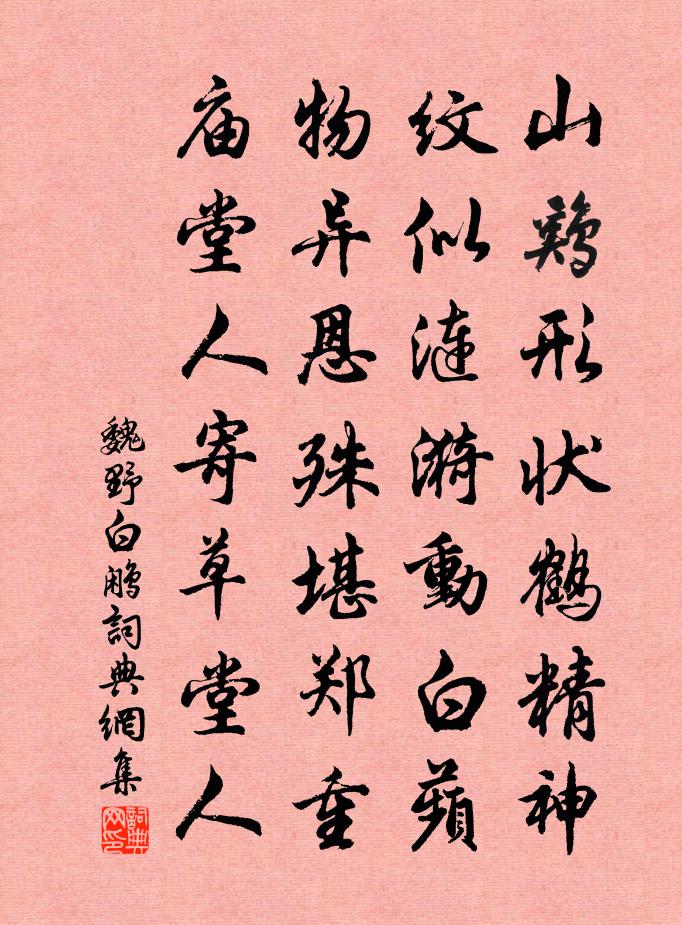 山鷄形状鹤精神
纹似涟漪動白蘋
物异恩殊堪郑重
庙堂人寄草堂人
魏野白鹇詞典網集
詞典网印